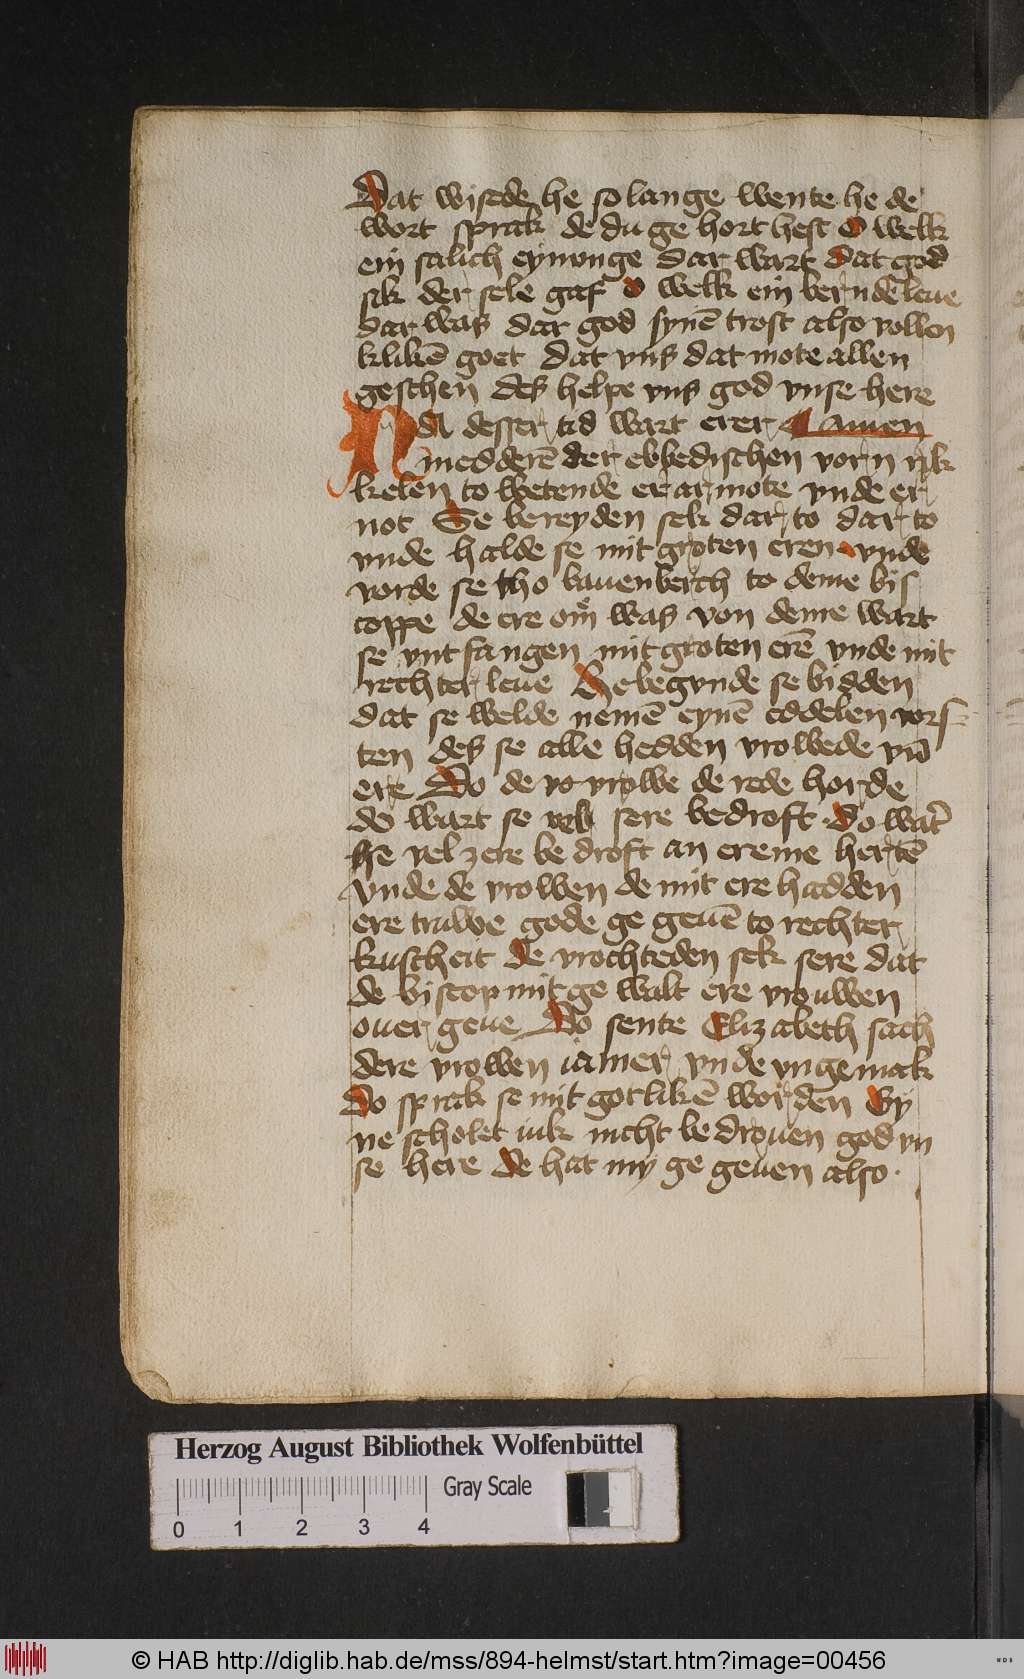 Dat wijstde he so lange wente he de
wort sprak de du ge hort hest O welk
ein salich eynunge dar wart dat god
sik der sele gaf o welk ein bernde leue
dar was dar god synē trost also vollen
klikē goet dat vns dat mote allen
geschen des helpe vns god vnse here
Na desser tid wart erer amen
medderē der ebbedischen vorn
kelen to wetende er armote vnde er
not Se bereyden sek dar to dar to
vnde halde se mit groten eren vnde
vorde se tho bauenberch to deme bis
coppe de ere om was von deme wart
se vnt fangen mit groten erē vnde mit
rechter leue He begunde se bidden
dat se welde nemē eynē eddelen vors
ten des se alle hedden vrolwede vn̄
ere Do de vrolwe de rede horde
do wart se sere bedroft do wart
se vel zere be droft an ereme hertē
vnde de vrolwen de mit ere hadden
ere truwe gode ge geuē to rechter
kuscheit de vrochteden sek sere dat
de biscop mit ge walt ere vrouwen
ouer geue Do sente Elizabeth sach
dere vrowen iamer vnde vnge mak
Do sprak se mit gotlikē worden Gy
ne scholet iuk nicht be drouen god vn
se here de hat my ge geuen also.
Herzog August Bibliothek Wolfenbüttel
Gray Scale
0 1 2 3 4
© HAB http://diglib.hab.de/mss/894-helmst/start.htm?image=00456